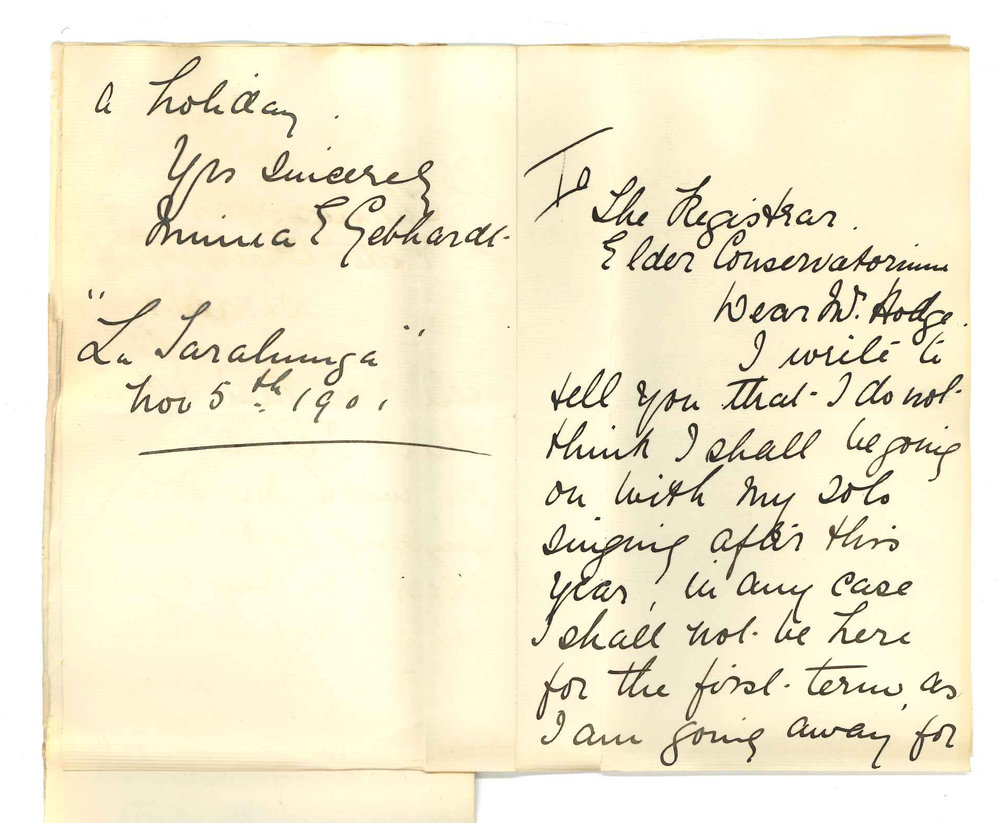 To The Registrar.
Elder Conservatorium
Dear Mr. Hodge.
I write to
tell you that I do not
think I shall be going
on with my solo
singing after this
year, in any case
I shall not be here
for the first term, as
I am going away for
a holiday.
Yrs sincerely
E Gebhardt
"La
Nov 5th. 1901